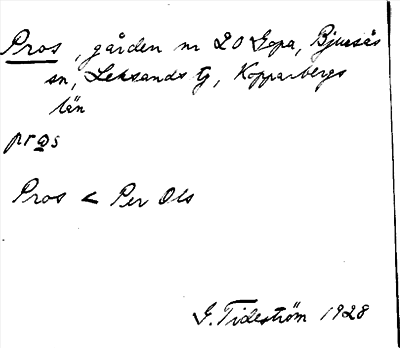 Pros, gården nr 20 Gopa, Bjursås
sn, Leksands tg, Kopparbergs
län
pras
Pros < Per Ols
G. Tideström 1928